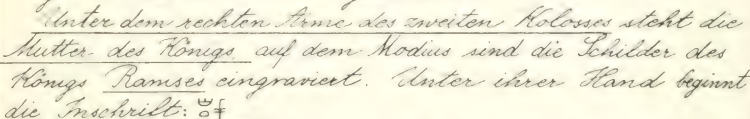 Unter dem rechten Arme des zweiten Kolosses steht die
Mutter des Königs auf dem Modius sind die Schilder des
Königs Ramses eingraviert. Unter ihrer Hand beginnt
die Inschrift: